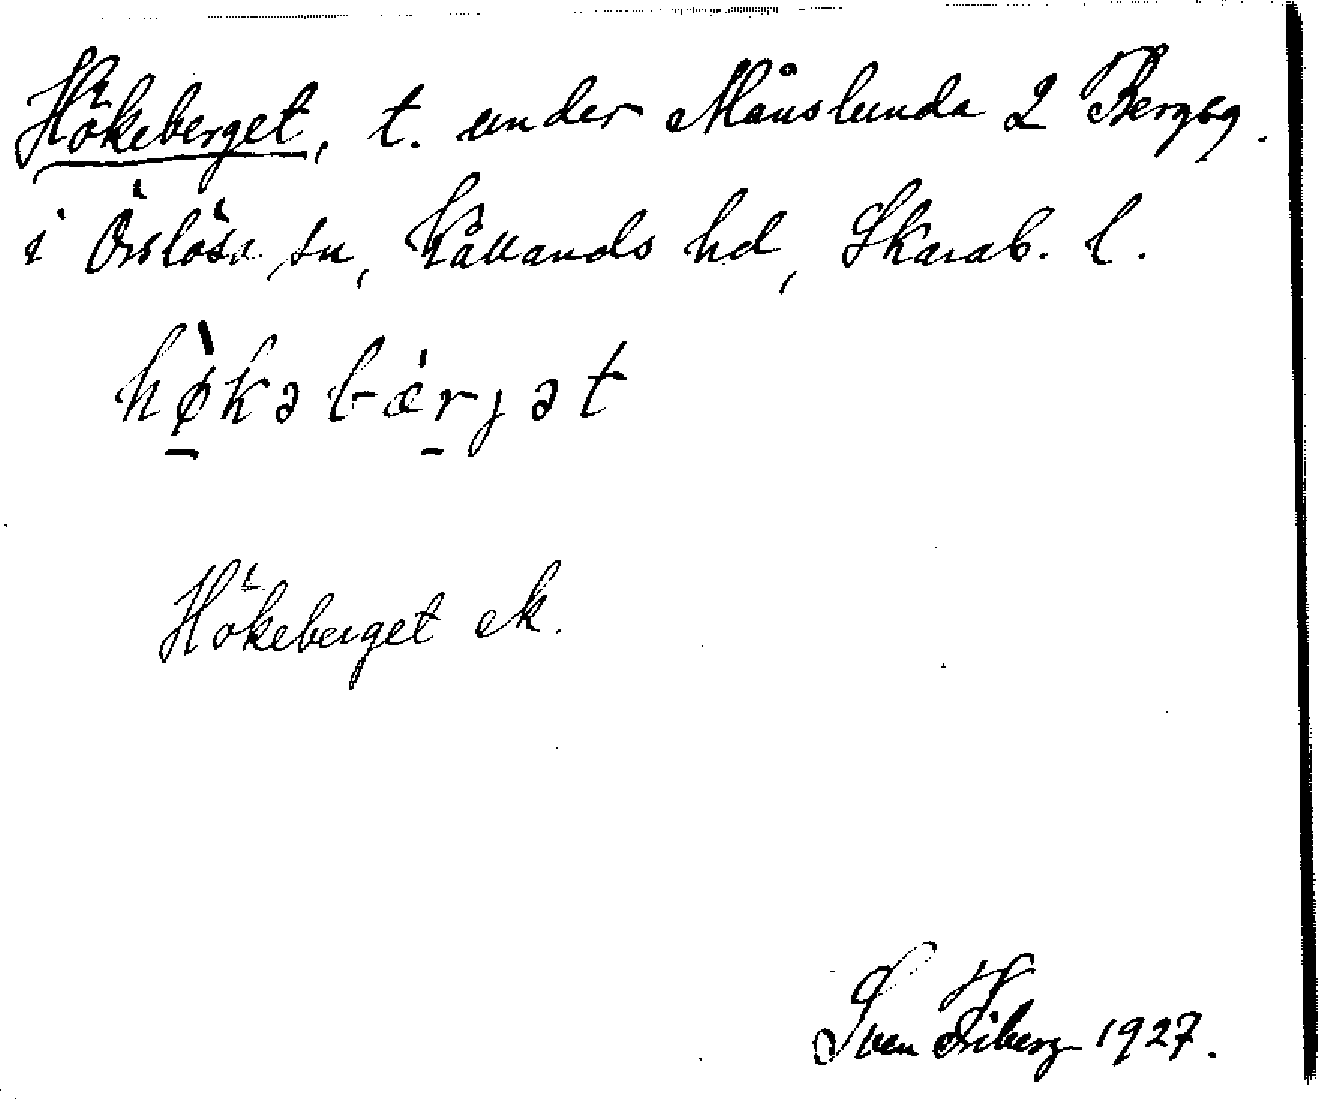 Hökeberget, t. under Månslunda 2 Bergsg.
i Örslösa sn, Kållands hd, Skarab. l.
hø̀kəbærjət
Hökeberget ek.
Sven Friberg 1927.